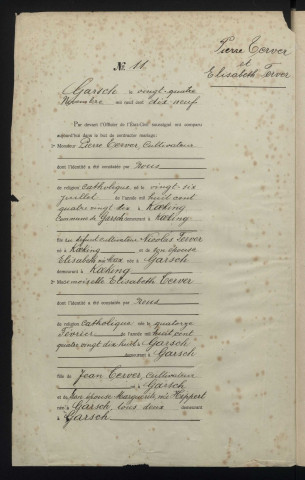 Pierre Terver
et
Elisabeth Terver
№ 11.
Garsch à vingt-quatre
Novembre mil neuf cent dix neuf
Par devant l'Officier de l'État-Civil soussigné ont comparu
aujourd'hui dans le but de contracter mariage:
1º Monsieur Pierre Terver, Cultivateur
dont l'identité a été constatée par nous
de religion catholique né le vingt-six
juillet de l'année mil huit cent
quatre vingt dix à Kœking
Commune de Garsch demeurant à Kœking
fils du défunt cultivateur Nicolas Terver
et à Kœking et de son épouse
Elisabeth née à Garsch
demeurant à Kœking
2º Mademoiselle Elisabeth Terver
dont l'identité a été constatée par nous
de religion catholique née le quatorze
Février de l'année mil huit cent
quatre vingt dix huit à Garsch
demeurant à Garsch
fille de Jean Terver, cultivateur
à Garsch
et de son épouse Marguerite, née Hippert
à Garsch, tous deux demeurant
à Garsch